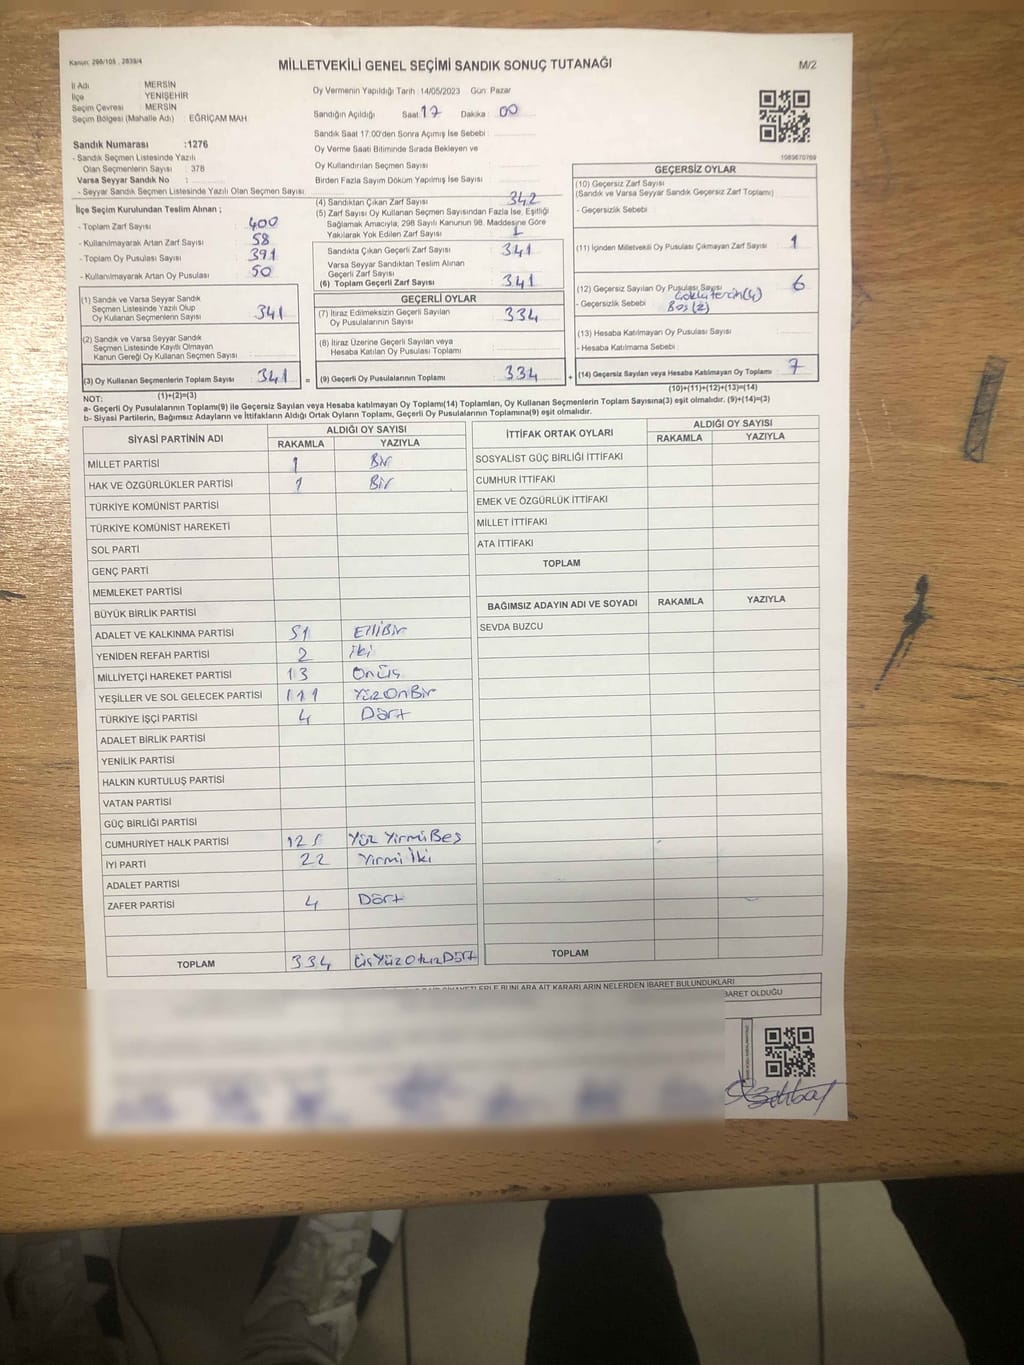 Kanun: 298/105 , 2839/4
MİLLETVEKİLİ GENEL SEÇİMİ SANDIK SONUÇ TUTANAĞI
M/2
İl Adı : MERSİN
İlçe YENİŞEHİR
Seçim Çevresi : MERSİN
Seçim Bölgesi (Mahalle Adı) : EĞRİÇAM MAH.
Sandık Numarası :1276
- Sandık Seçmen Listesinde Yazılı
Olan Seçmenlerin Sayısı : 378
Varsa Seyyar Sandık No :
- Seyyar Sandık Seçmen Listesinde Yazılı Olan Seçmen Sayısı:
Oy Vermenin Yapıldığı Tarih : 14/05/2023 Gün: Pazar
Sandığın Açıldığı Saat: 17 Dakika : 00
Sandık Saat 17:00'den Sonra Açmış İse Sebebi :
Oy Verme Saati Bitiminde Sırada Bekleyen ve
Oy Kullandırılan Seçmen Sayısı
Birden Fazla Sayım Döküm Yapılmış İse Sayısı :
1089670769
İlçe Seçim Kurulundan Teslim Alınan ;
- Toplam Zarf Sayısı : 400
- Kullanılmayarak Artan Zarf Sayısı 58
- Toplam Oy Pusulası Sayısı : 391
- Kullanılmayarak Artan Oy Pusulası 50
(1) Sandık ve Varsa Seyyar Sandık
Seçmen Listesinde Yazılı Olup
Oy Kullanan Seçmenlerin Sayısı 341
(2) Sandık ve Varsa Seyyar Sandık
Seçmen Listesinde Kayıtlı Olmayan
Kanun Gereği Oy Kullanan Seçmen Sayısı :
(3) Oy Kullanan Seçmenlerin Toplam Sayısı : 341 =
(4) Sandıktan Çıkan Zarf Sayısı : 342
(5) Zarf Sayısı Oy Kullanan Seçmen Sayısından Fazla İse, Eşitliği
Sağlamak Amacıyla, 298 Sayılı Kanunun 98. Maddesine Göre
Yakılarak Yok Edilen Zarf Sayısı : 1
Sandıkta Çıkan Geçerli Zarf Sayısı : 341
Varsa Seyyar Sandıktan Teslim Alınan
Geçerli Zarf Sayısı
(6) Toplam Geçerli Zarf Sayısı : 341
GEÇERLİ OYLAR
(7) İtiraz Edilmeksizin Geçerli Sayılan
Oy Pusulalarının Sayısı : 334
(8) İtiraz Üzerine Geçerli Sayılan veya
Hesaba Katılan Oy Pusulası Toplamı :
(9) Geçerli Oy Pusulalarının Toplamı : 334 +
GEÇERSİZ OYLAR
(10) Geçersiz Zarf Sayısı
(Sandık ve Varsa Seyyar Sandık Geçersiz Zarf Toplamı)
- Geçersizlik Sebebi
(11) İçinden Milletvekili Oy Pusulası Çıkmayan Zarf Sayısı : 1
(12) Geçersiz Sayılan Oy Pusulası Sayısı 6
- Geçersizlik Sebebi : Çoklu tercih (4)
Boş (2)
(13) Hesaba Katılmayan Oy Pusulası Sayısı
- Hesaba Katılmama Sebebi :
(14) Geçersiz Sayılan veya Hesaba Katılmayan Oy Toplamı : 7
NOT: (1)+(2)=(3) (10)+(11)+(12)+(13)=(14)
a- Geçerli Oy Pusulalarının Toplamı(9) ile Geçersiz Sayılan veya Hesaba katılmayan Oy Toplamı(14) Toplamları, Oy Kullanan Seçmenlerin Toplam Sayısına(3) eşit olmalıdır. (9)+(14)=(3)
b- Siyasi Partilerin, Bağımsız Adayların ve İttifakların Aldığı Ortak Oyların Toplamı, Geçerli Oy Pusulalarının Toplamına(9) eşit olmalıdır.
SİYASİ PARTİNİN ADI ALDIĞI OY SAYISI
RAKAMLA YAZIYLA
MİLLET PARTİSİ 1 Bir
HAK VE ÖZGÜRLÜKLER PARTİSİ 1 Bir
TÜRKİYE KOMÜNİST PARTİSİ
TÜRKİYE KOMÜNİST HAREKETİ
SOL PARTİ
GENÇ PARTİ
MEMLEKET PARTİSİ
BÜYÜK BİRLİK PARTİSİ
ADALET VE KALKINMA PARTİSİ 51 ElliBir
YENİDEN REFAH PARTİSİ 2 iki
MİLLİYETÇİ HAREKET PARTİSİ 13 Onüç
YEŞİLLER VE SOL GELECEK PARTİSİ 111 YüzOnBir
TÜRKİYE İŞÇİ PARTİSİ 4 Dört
ADALET BİRLİK PARTİSİ
YENİLİK PARTİSİ
HALKIN KURTULUŞ PARTİSİ
VATAN PARTİSİ
GÜÇ BİRLİĞİ PARTİSİ
CUMHURİYET HALK PARTİSİ 125 Yüz YirmiBeş
İYİ PARTİ 22 Yirmi İki
ADALET PARTİSİ
ZAFER PARTİSİ 4 Dört
TOPLAM 334 ÜçYüzOtuzDört
İTTİFAK ORTAK OYLARI ALDIĞI OY SAYISI
RAKAMLA YAZIYLA
SOSYALİST GÜÇ BİRLİĞİ İTTİFAKI
CUMHUR İTTİFAKI
EMEK VE ÖZGÜRLÜK İTTİFAKI
MİLLET İTTİFAKI
ATA İTTİFAKI
TOPLAM
BAĞIMSIZ ADAYIN ADI VE SOYADI RAKAMLA YAZIYLA
SEVDA BUZCU
TOPLAM
BUNLARA AİT KARARLARIN NELERDEN İBARET BULUNDUKLARI
İBARET OLDUĞU